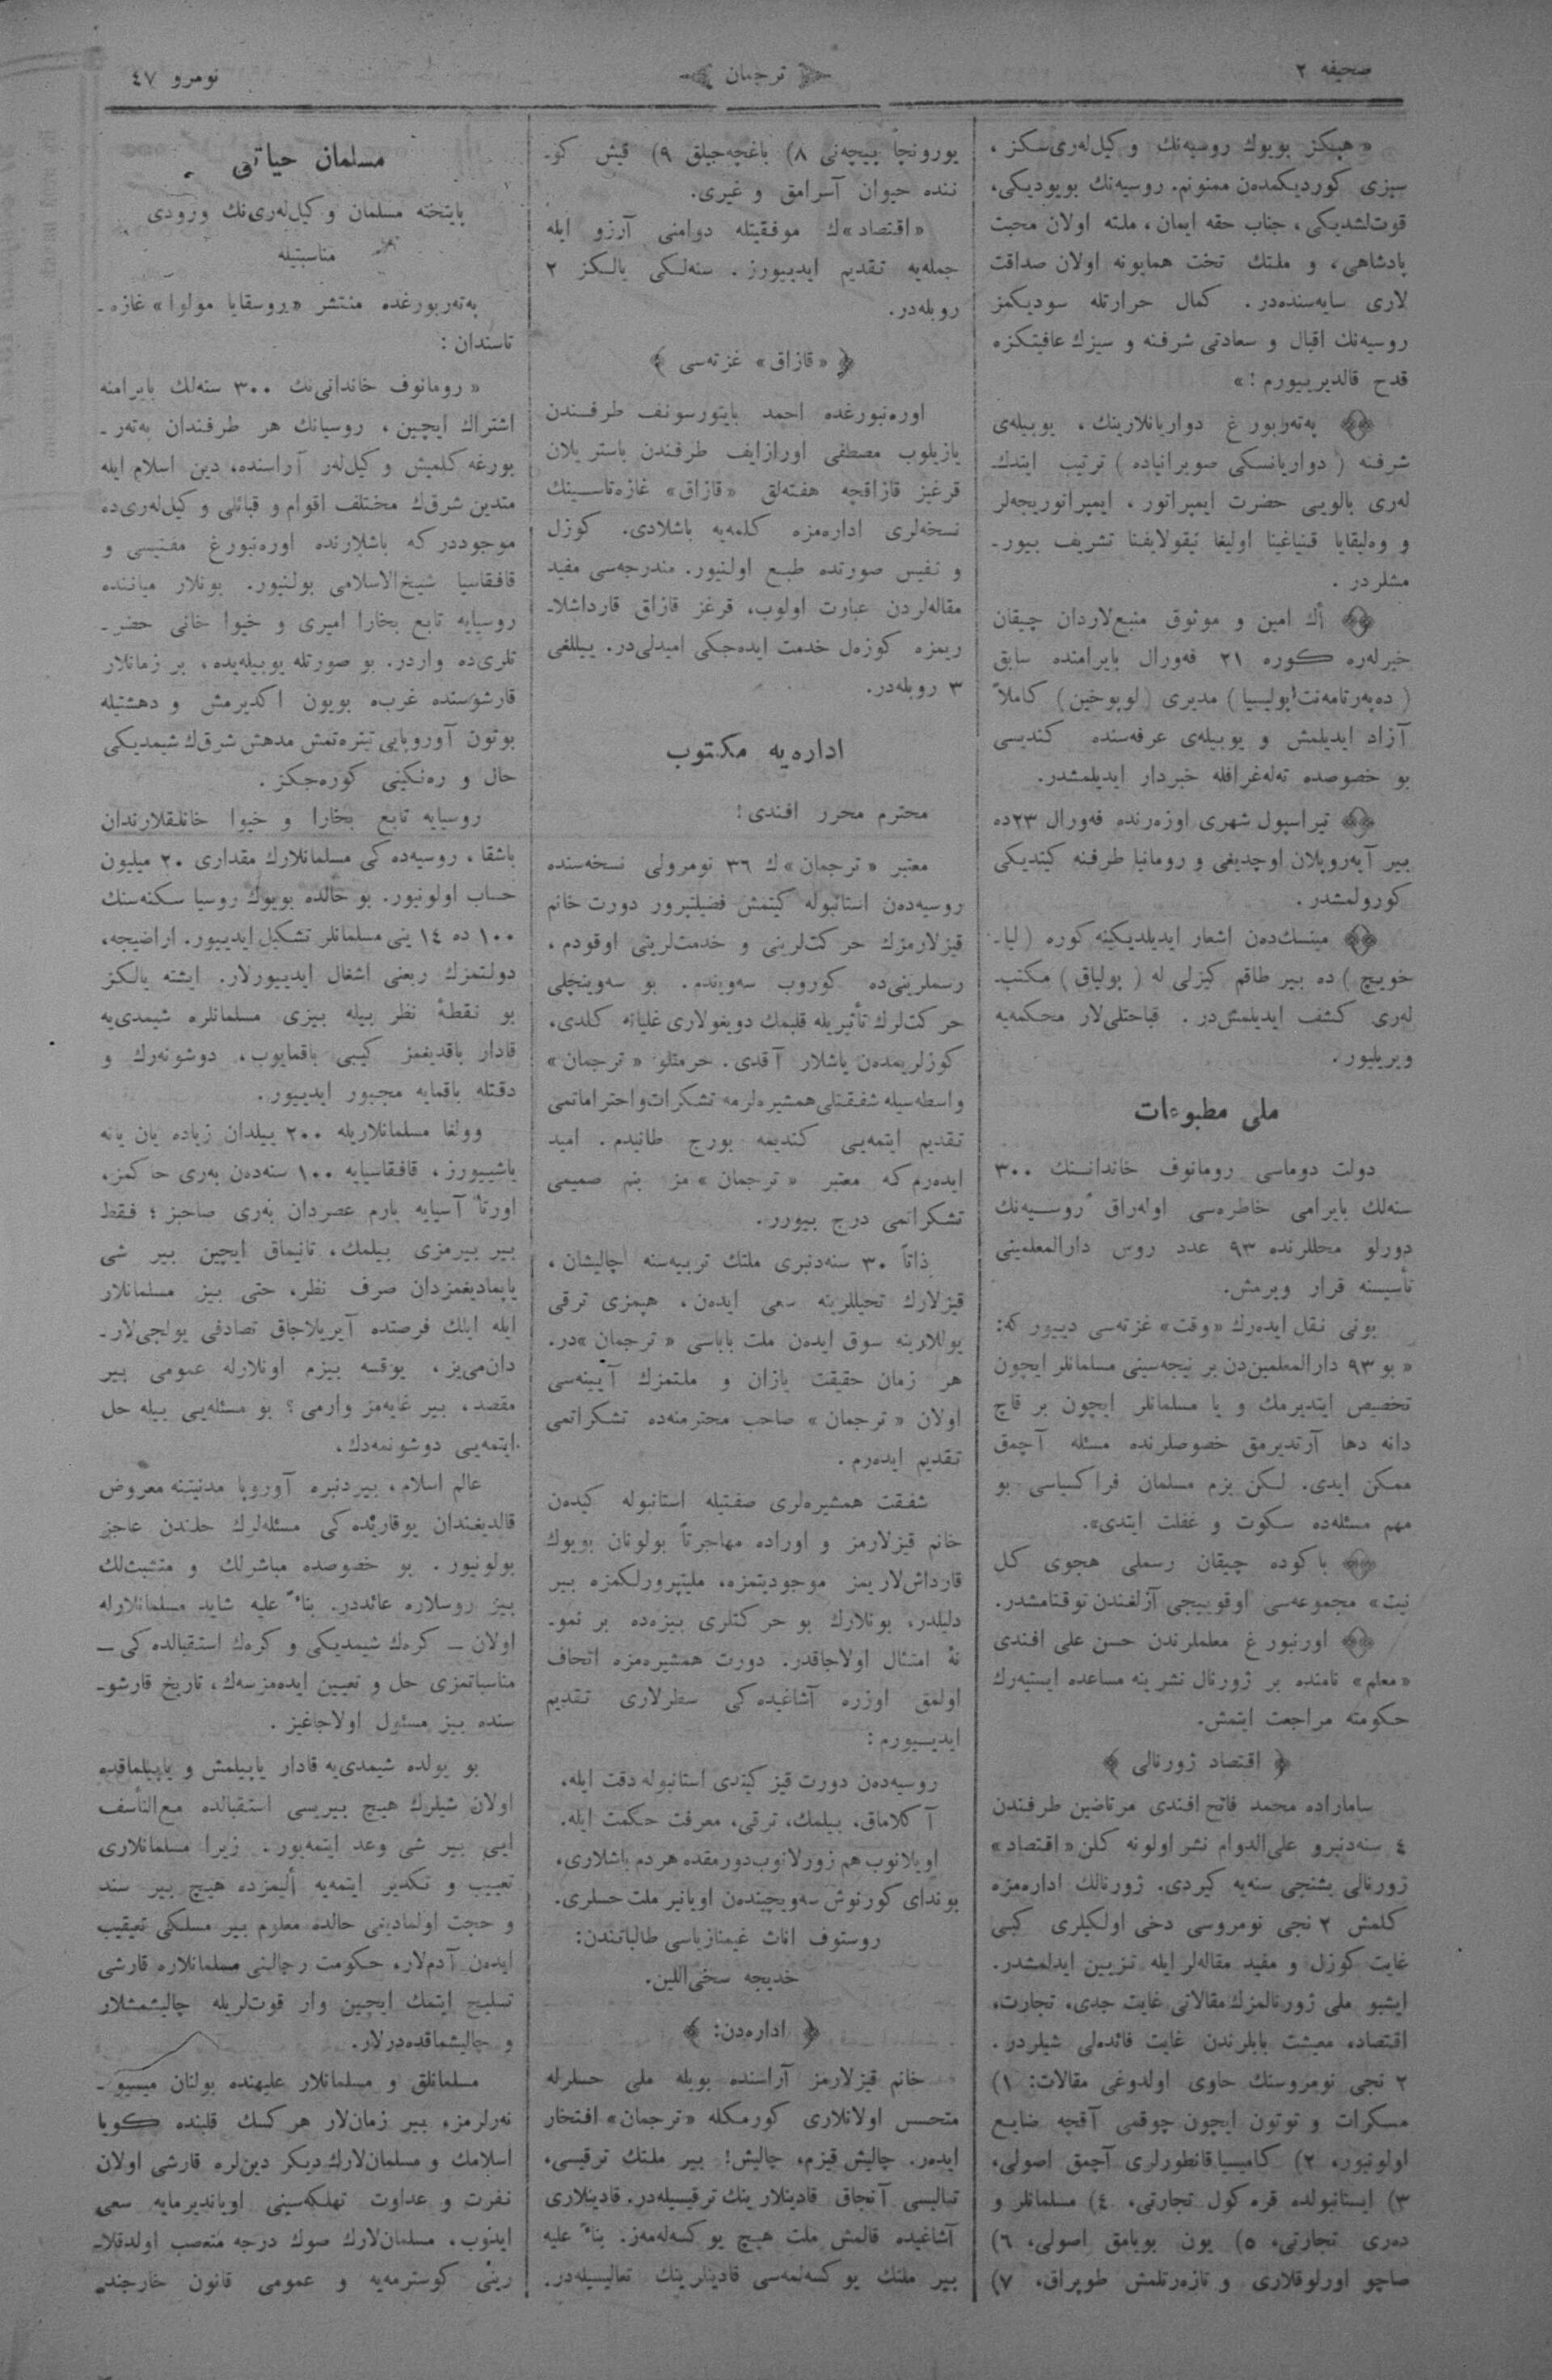 صحیفه ٢
ترجمان
نومرو ٤٧
« هپکز بویوك روسیه‌نك وکیل‌لەری‌سکز ،
سیزی کوردیکمدەن ممنونم. روسیه‌نك بویودیکی،
قوت‌لشدیکی ، جناب حقه ایمان ، ملته اولان محبت
پادشاهی ، و ملتك تخت همایونه اولان صداقت
لاری سایه‌سنده‌در . کمال حرارتله سودیکمز
روسیه‌نك اقبال و سعادتی شرفنه و سیزك عافیتکزه
قدح قالدیرییورم ! »
پەتەربورغ دواریانلارینك ، یوبیلەی
شرفنه ( دواریانسکی صوبرانیاده ) ترتیب ایتدك‌ـ
لەری بالویی حضرت ایمپراتور ، ایمپراتوریجەلر
و وەلیقایا قنیاغینا اولیغا نیقولایفنا تشریف بیور‌ـ
مشلردر .
أك امین و موثوق منبع‌لاردان چیقان
خبرلەره کوره ٢١ فەورال بایرامنده سابق
( دەپەرتامەنت پولیسیا ) مدیری ( لوپوخین ) کاملاً
آزاد ایدیلمش و یوبیلەی عرفه‌سنده کندیسی
بو خصوصده تەلەغرافله خبردار ایدیلمشدر.
تیراسپول شهری اوزەرنده فەورال ٢٣ده
بیر آیەروپلان اوچدیغی و رومانیا طرفنه کیتدیکی
کورولمشدر .
مینسك‌دەن اشعار ایدیلدیکینه کوره ( لیا‌ـ
خویچ ) ده بیر طاقم کیزلی له ( پولیاق ) مکتب‌ـ
لەری کشف ایدیلمش‌در . قباحتلی‌لار محکمه‌یه
ویریلیور .
ملی مطبوعات
دولت دوماسی رومانوف خاندانـنك ٣٠٠
سنه‌لك بایرامی خاطره‌سی اولەراق روسـیه‌نك
دورلو محللرنده ٩٣ عدد روس دارالمعلمینی
تأسیسنه قرار ویرمش.
بونی نقل ایدەرك «وقت» غزته‌سی دییور که:
« بو ٩٣ دارالمعلمین‌دن بر نیجه‌سینی مسلمانلر ایچون
تخصیص ایتدیرمك و یا مسلمانلر ایچون بر قاچ
دانه دها آرتدیرمق خصوصلرنده مسئله آچمق
ممکن ایدی. لکن بزم مسلمان فراکسیاسی بو
مهم مسئله‌ده سکوت و غفلت ایتدی».
باکوده چیقان رسملی هجوی کل
نیت» مجموعه‌سی اوقوییجی آزلغندن توقتامشدر.
اورنبورغ معلملرندن حسن علی افندی
«معلم» نامنده بر ژورنال نشرینه مساعده ایستیەرك
حکومته مراجعت ایتمش.
﴿ اقتصاد ژورنالی ﴾
ساماراده محمد فاتح افندی مرتاضین طرفندن
٤ سنه‌دنبرو علی‌الدوام نشر اولونه کلن «اقتصاد»
ژورنالی بشنجی سنه‌یه کیردی. ژورنالك اداره‌مزه
کلمش ٢ نجی نومروسی دخی اولکیلری کبی
غایت کوزل و مفید مقاله‌لر ایله تزیین ایدلمشدر.
ایشبو ملی ژورنالمزك مقالاتی غایت جدی، تجارت،
اقتصاد، معیشت بابلرندن غایت فائده‌لی شیلردر.
٢ نجی نومروسنك حاوی اولدوغی مقالات: ١)
مسکرات و توتون ایچون چوقمی آقچه ضایع
اولونیور، ٢) کامیسیا قانطورلری آچمق اصولی،
٣) ایستانبولده قره کول تجارتی، ٤) مسلمانلر و
دەری تجارتی، ٥) یون بویامق اصولی، ٦)
صاچو اورلوقلاری و تازەرتلمش طوپراق، ٧)
یورونچا پیچەنی ٨) باغچه‌جیلق ٩) قیش کو‌ـ
ننده حیوان آسرامق و غیری.
«اقتصاد»ك موفقیتله دوامنی آرزو ایله
جمله‌یه تقدیم ایدییورز. سنه‌لکی یالکز ٢
روبله‌در.
﴿ «قازاق» غزته‌سی ﴾
اورەنبورغده احمد بایتورسونف طرفـندن
یازیلوب مصطفی اورازایف طرفندن باستریلان
قرغیز قازاقچه هفته‌لق «قازاق» غازەتاسـینك
نسخه‌لری اداره‌مزه کلمه‌یه باشلادی. کوزل
و نفیس صورتده طبع اولنیور. مندرجه‌سی مفید
مقاله‌لردن عبارت اولوب، قرغز قازاق قارداشلا‌ـ
ریمزه کوزەل خدمت ایدەجکی امیدلی‌در. ییللغی
٣ روبله‌در.
اداره‌یه مکتوب
محترم محرر افندی!
معتبر «ترجمان»ك ٣٦ نومرولی نسخه‌سنده
روسیه‌دەن استانبوله کیتمش فضیلتپرور دورت خانم
قیزلارمزك حرکت‌لرینی و خدمت‌لرینی اوقودم،
رسملرینی‌ده کوروب سەویندم. بو سەوینچلی
حرکت‌لرك تأثیریله قلبمك دویغولاری غلیانه کلدی،
کوزلریمدەن یاشلار آقدی. حرمتلو «ترجمان»
واسطه‌سیله شفقتلی همشیره‌لرمه تشکرات‌و احتراماتمی
تقدیم ایتمه‌یی کندیمه بورج طانیدم. امید
ایدەرم‌که معتبر «ترجمان»مز بنم صمیمی
تشکرانمی درج بیورر.
ذاتاً ٣٠ سنه‌دنبری ملتك تربیه‌سنه چالیشان،
قیزلارك تحیللرینه سعی ایدەن، هپمزی ترقی
یوللارینه سوق ایدەن ملت باباسی «ترجمان»در.
هر زمان حقیقت یازان و ملتمزك آیینه‌سی
اولان «ترجمان» صاحب محترمنه‌ده تشکراتمی
تقدیم ایدەرم.
شفقت همشیره‌لری صفتیله استانبوله کیدەن
خانم قیزلارمز و اوراده مهاجرتاً بولونان بویوك
قارداش‌لاریمز موجودیتمزه، ملیتپرورلکمزه بیر
دلیلدر، بونلارك بو حرکتلری بیزەده بر نمو‌ـ
نهٔ امتثال اولاجاقدر. دورت همشیره‌مزه اتحاف
اولمق اوزره آشاغیده‌کی سطرلاری تقدیم
ایدیـیورم:
روسیه‌دەن دورت قیز کیتدی استانبوله دقت ایله،
آکلاماق، بیلمك، ترقی، معرفت حکمت ایله.
اویلانوب هم زورلانوب‌دورمقده هردم باشلاری،
بوندای کورنوش سەویچیندەن اویانیر ملت حسلری.
روستوف اناث غیمنازیاسی طالباتندن:
خدیجه سخی‌اللین.
﴿ اداره‌دن: ﴾
خانم قیزلارمز آراسنده بویله ملی حسلرله
متحسس اولانلاری کورمکله «ترجمان» افتخار
ایدەر. چالیش قیزم، چالیش! بیر ملتك ترقیسی،
تیالیسی آنجاق قادینلارینك ترقیسیله‌در. قادینلاری
آشاغیده قالمش ملت هیچ یوکسه‌له‌مه‌ز. بناءً علیه
بیر ملتك یوکسه‌لمه‌سی قادینلرینك تعالیسیله‌در.
مسلمان حیاتی
پایتخته مسلمان وکیل‌لەری‌نك ورودی
مناسبتیله
پەتەربورغده منتشر «روسقایا مولوا» غازه‌ـ
تاسندان:
«رومانوف خاندانی‌نك ٣٠٠ سنه‌لك بایرامنه
اشتراك ایچین، روسیانك هر طرفندان پەتەر‌ـ
بورغه کلمیش وکیل‌لەر آراسنده، دین اسلام ایله
متدین شرق‌ك مختلف اقوام و قبائلی وکیل‌لەری‌ده
موجوددر که باشلارنده اورەنبورغ مفتیسی و
قافقاسیا شیخ‌الاسلامی بولنیور. بونلار میاننده
روسیایه تابع بخارا امیری و خیوا خانی حضر‌ـ
تلری‌ده واردر. بو صورتله یوبیلەیده، بر زمانلار
قارشوسنده غربه بویون اکدیرمش و دهشتیله
بوتون آوروپایی تیترەتمش مدهش شرق‌ك شیمدیکی
حال و رەنکینی کورەجکز.
روسیایه تابع بخارا و خیوا خانلقلارندان
باشقا، روسیه‌ده‌کی مسلمانلارك مقداری ٢٠ میلیون
حساب اولونیور. بو حالده بویوك روسیا سکنه‌سنك
١٠٠ ده ١٤ ینی مسلمانلر تشکیل ایدییور. اراضیجه،
دولتمزك ربعنی اشغال ایدییورلار. ایشته یالکز
بو نقطهٔ نظر بیله بیزی مسلمانلره شیمدی‌یه
قادار باقدیغمز کیبی باقمایوب، دوشونەرك و
دقتله باقمایه مجبور ایدییور.
وولغا مسلمانلاریله ٢٠٠ ییلدان زیاده یان یانه
یاشییورز، قافقاسیایه ١٠٠ سنه‌دەن بەری حاکمز،
اورتا آسیایه یارم عصردان بەری صاحبز؛ فقط
بیر بیرمزی بیلمك، تانیماق ایچین بیر شی
یاپمادیغمزدان صرف نظر، حتی بیز مسلمانلار
ایله ایلك فرصتده آیریلاجاق تصادفی یولجی‌لار‌ـ
دان‌می‌یز، یوقسه بیزم اونلارله عمومی بیر
مقصد، بیر غایه‌مز وارمی؟ بو مسئله‌یی بیله حل
ایتمه‌یی دوشونمه‌دك.
عالم اسلام، بیردنبره آوروپا مدنیتینه معروض
قالدیغندان یوقاریده‌کی مسئله‌لرك حلندن عاجز
بولونیور. بو خصوصده مباشرلك و متشبث‌لك
بیز روسلاره عائددر. بناءً علیه شاید مسلمانلارله
اولان — کرەك شیمدیکی و کرەك استقبالده‌کی —
مناسباتمزی حل و تعیین ایدەمزسەك، تاریخ قارشو‌ـ
سنده بیز مسئول اولاجاغیز.
بو یولده شیمدی‌یه قادار یاپیلمش و یاپیلماقده
اولان شیلرك هیچ بیریسی استقبالده مع‌التأسف
ایی بیر شی وعد ایتمه‌یور. زیرا مسلمانلاری
تعییب و تکدیر ایتمه‌یه ألیمزده هیچ بیر سند
و حجت اولمادینی حالده معلوم بیر مسلکی تعیقیب
ایدەن آدم‌لار، حکومت رجالینی مسلمانلاره قارشی
تسلیح ایتمك ایچین وار قوت‌لریله چالیشمشلار
و چالیشماقده‌درلار.
مسلمانلق و مسلمانلار علیهنده بولنان میسیو‌ـ
نەرلرمز، بیر زمان‌لار هرکسك قلبنده کویا
اسلامك و مسلمان‌لارك دیکر دین‌لره قارشی اولان
نفرت و عداوت تهلکه‌سینی اویاندیرمایه سعی
ایدوب، مسلمان‌لارك صوك درجه متعصب اولدقلا‌ـ
رینی کوسترمه‌یه و عمومی قانون خارجنده